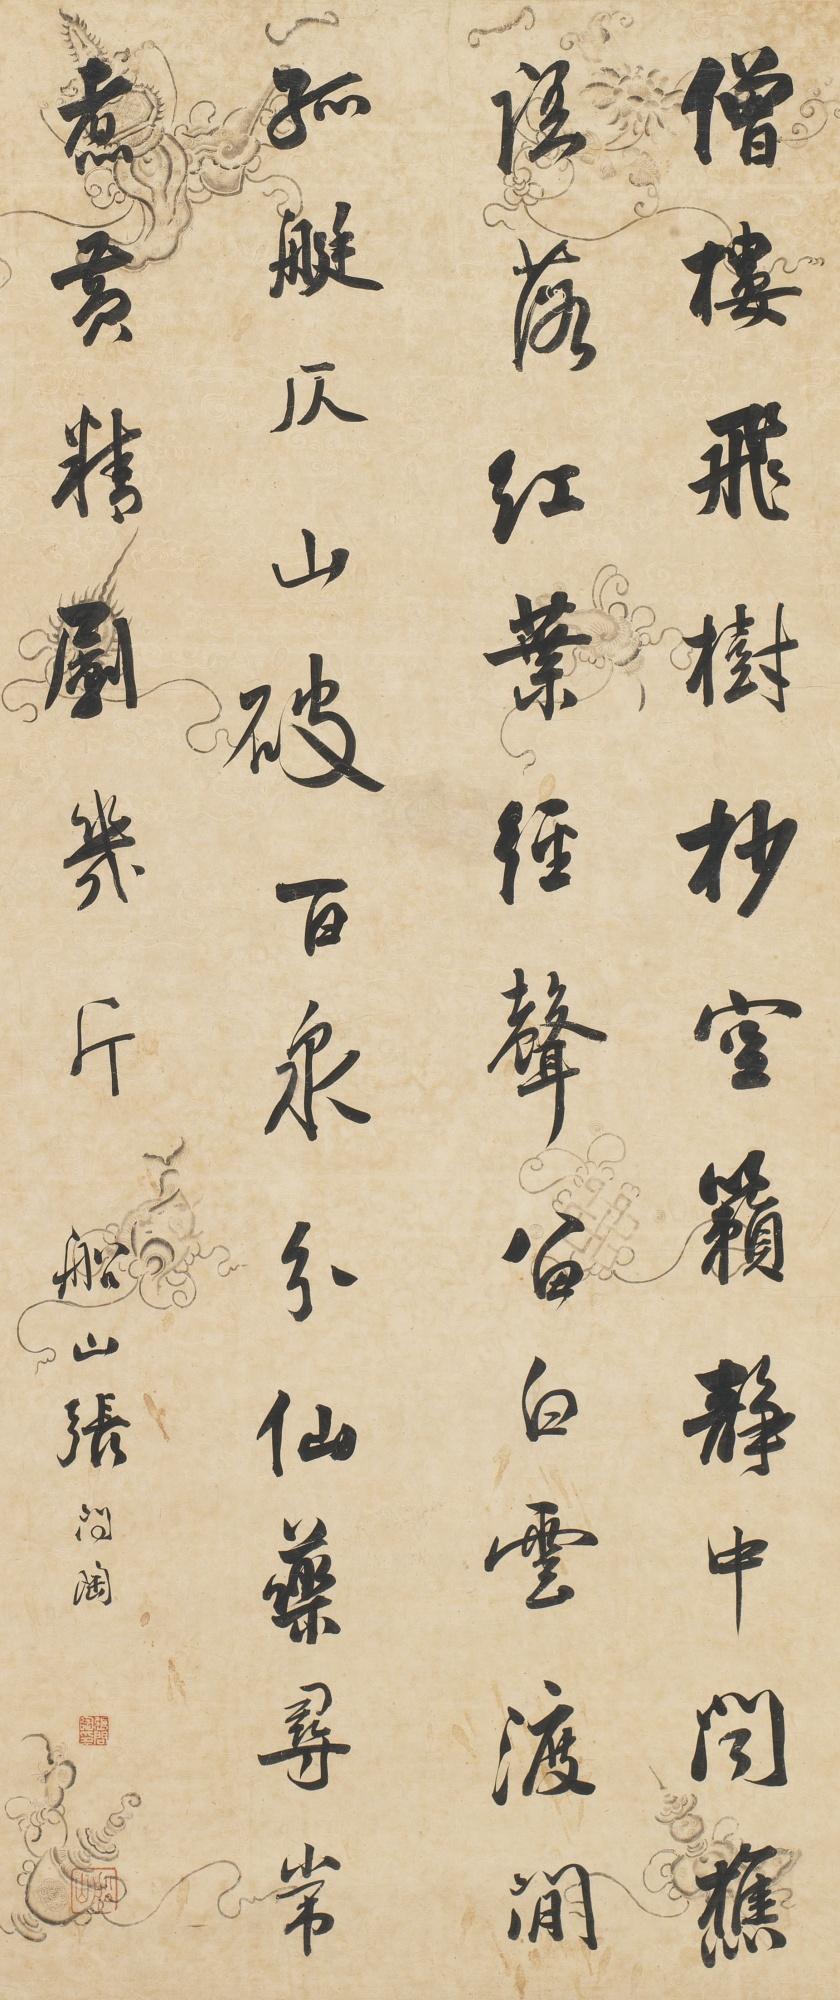 僧樓飛樹杪空籟靜中聞樵
語落紅葉經聲留白雲渡澗
孤艇仄山破百泉分仙藥尋常
煮黃精劚幾斤
船山張問陶